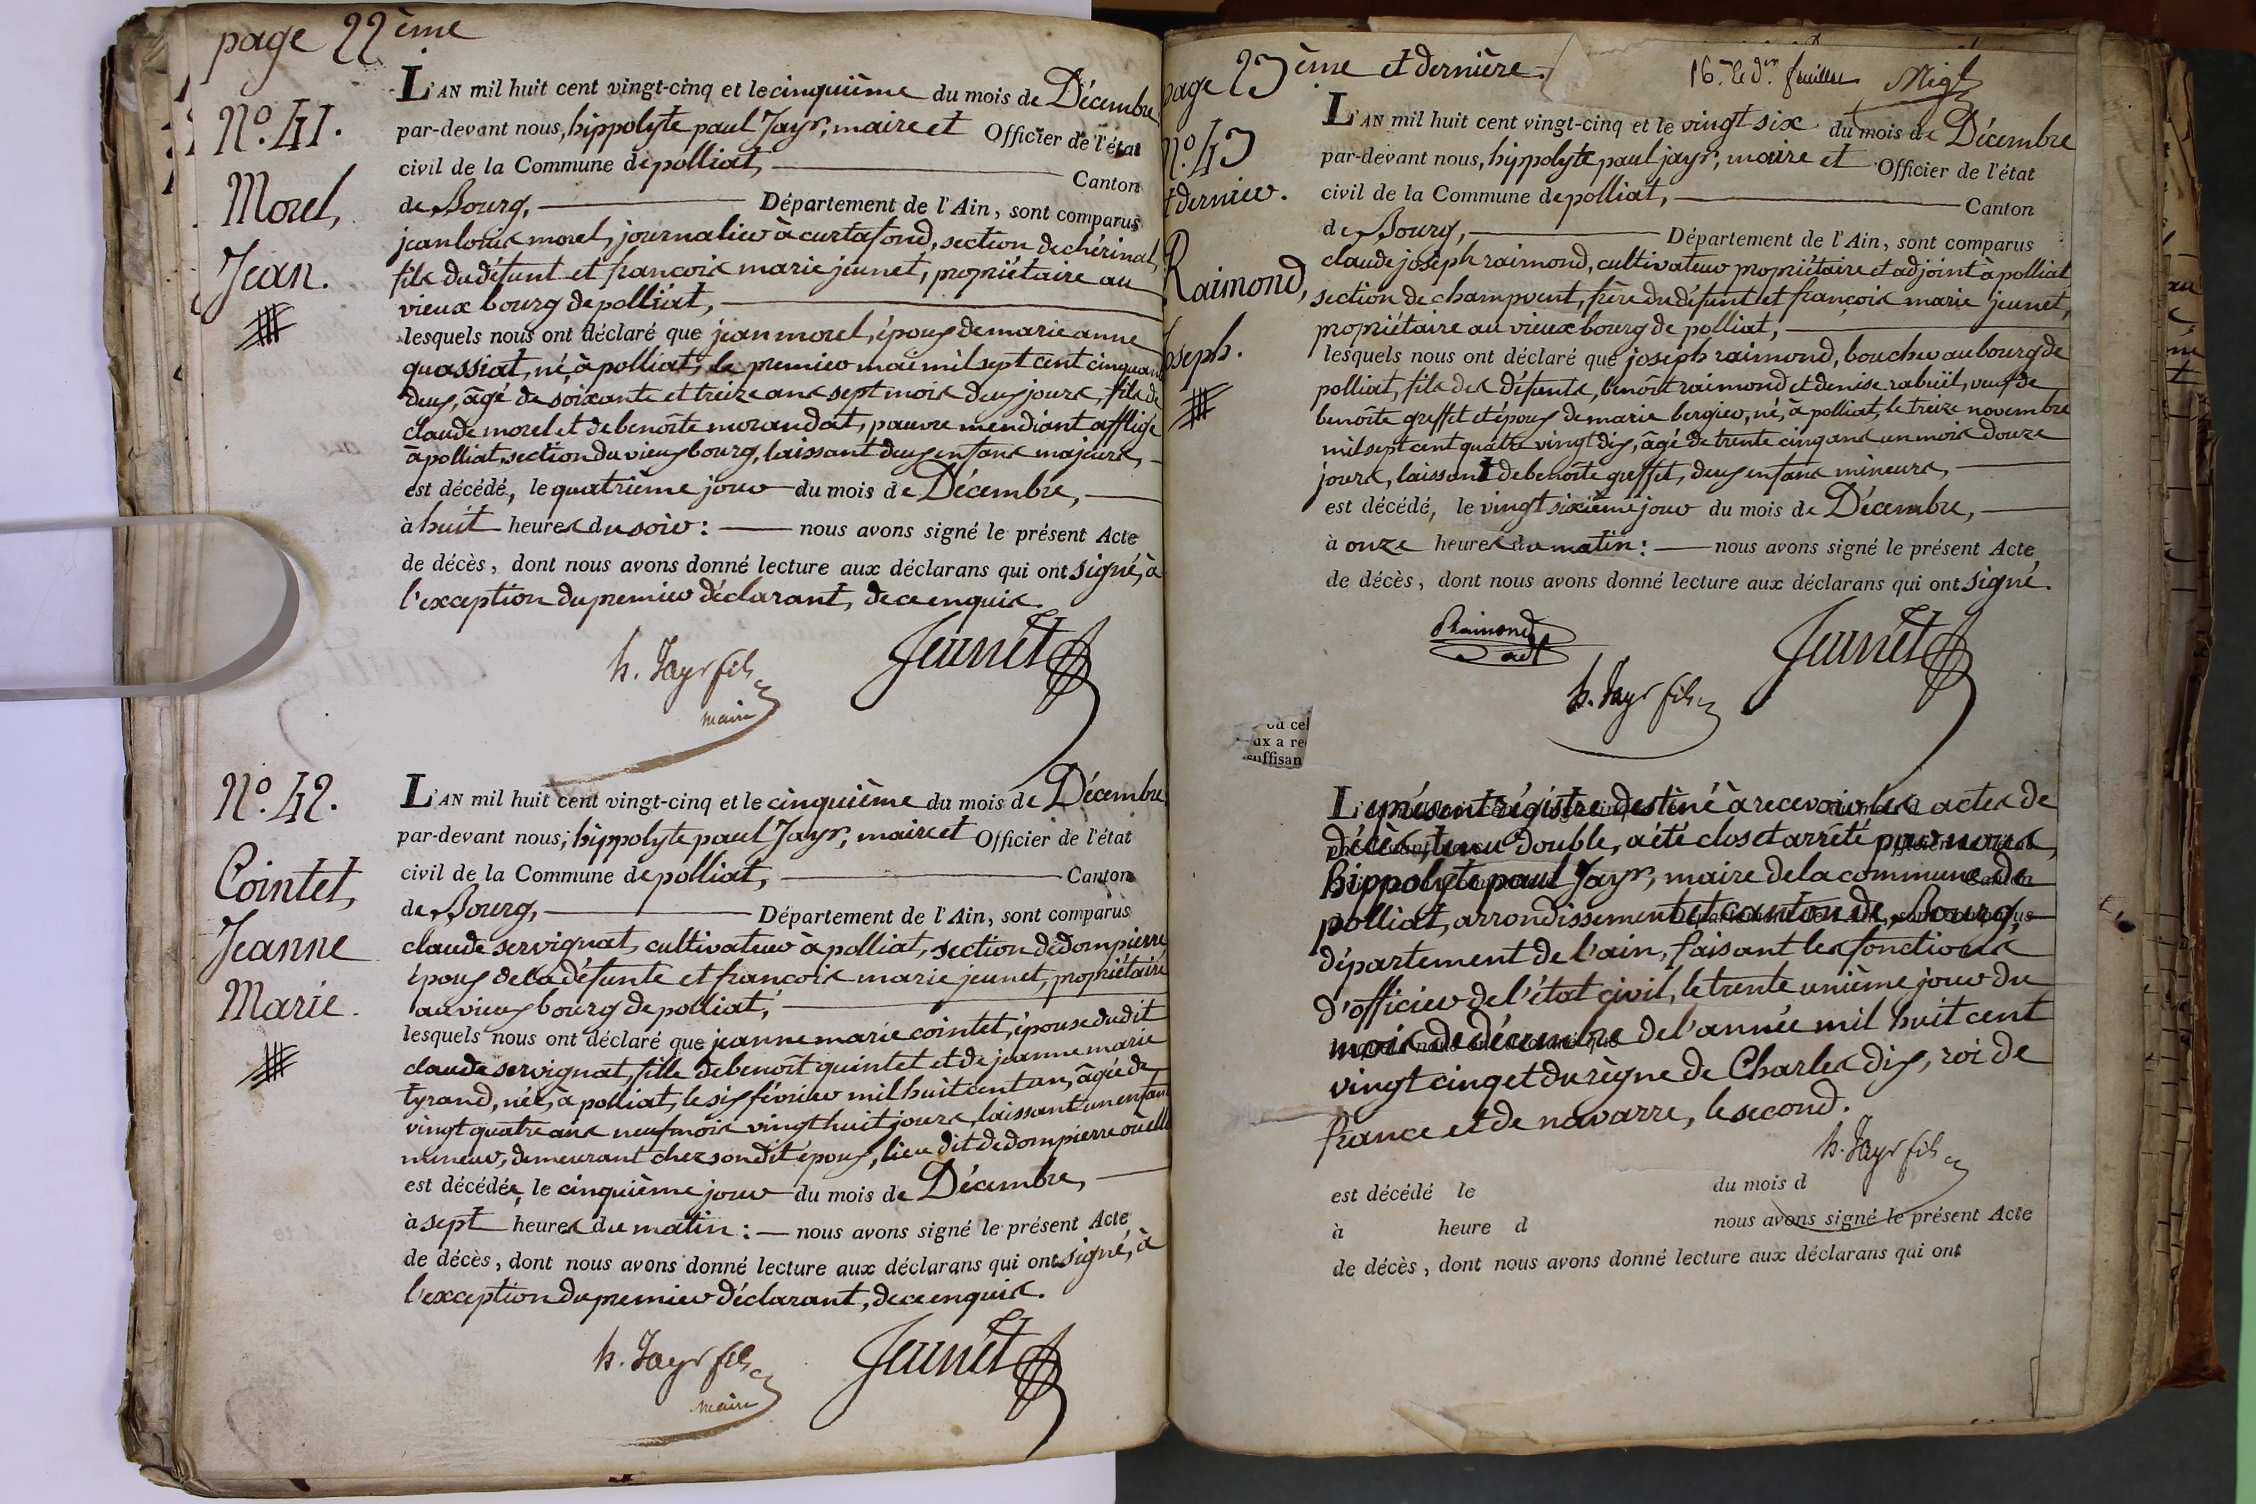 page 22ème
N.º 41.
Morel,
Jean.
L'AN mil huit cent vingt-cinq et le cinquième du mois de Décembre
par-devant nous, hippolyte paul Jayr, maire et Officier de l'état
civil de la Commune de polliat, Canton
de Bourg, Département de l'Ain, sont comparus
jean louis morel, journalier à curtafond, section de chérinal,
fils du défunt et françois marie jeunet, propriétaire au
vieux bourg de polliat,
lesquels nous ont déclaré que jean morel, époux de marie anne
quassiat, né, à polliat, le premier mai mil sept cent cinquante
deux, âgé de soixante et treize ans sept mois deux jours, fils de
claude morel et de benoîte morandat, pauvre mendiant affligé
à polliat, section du vieux bourg, laissant deux enfans majeurs,
est décédé, le quatrième jour du mois de Décembre,
à huit heures du soir : nous avons signé le présent Acte
de décès, dont nous avons donné lecture aux déclarans qui ont signé, à
l'exception du premier déclarant, de ce enquis.
h. Jayr fils
maire
Jeunet
N.º 42.
Cointet,
Jeanne
Marie.
L'AN mil huit cent vingt-cinq et le cinquième du mois de Décembre
par-devant nous, hippolyte paul Jayr, maire et Officier de l'état
civil de la Commune de polliat, Canton
de Bourg, Département de l'Ain, sont comparus
claude servignat, cultivateur à polliat, section de dompierre
époux de la défunte et françois marie jeunet, propriétaire
au vieux bourg de polliat,
lesquels nous ont déclaré que jeanne marie cointet, épouse du dit
claude servignat, fille de benoît quintet et de jeanne marie
tyrand, née, à polliat, le six février mil huit cent un, âgée de
vingt quatre ans neuf mois vingt huit jours, laissant un enfant
mineur, demeurant chez son dit époux, lieu dit de dompierre où elle
est décédée, le cinquième jour du mois de Décembre,
à sept heures du matin : nous avons signé le présent Acte
de décès, dont nous avons donné lecture aux déclarans qui ont signé, à
l'exception du premier déclarant, de ce enquis.
h. Jayr fils
maire
Jeunet
page 23ème et dernière.
16.me et d.er feuillet
N.º 43
et dernier.
Raimond,
Joseph.
L'AN mil huit cent vingt-cinq et le vingt six du mois de Décembre
par-devant nous, hippolyte paul jayr, maire et Officier de l'état
civil de la Commune de polliat, Canton
de Bourg, Département de l'Ain, sont comparus
claude joseph raimond, cultivateur propriétaire et adjoint à polliat
section de champvent, frère du défunt et françois marie jeunet,
propriétaire au vieux bourg de polliat,
lesquels nous ont déclaré que joseph raimond, boucher au bourg de
polliat, fils des défunts, benoît raimond et denise rabuël, veuf de
benoîte greffet et époux de marie bergier, né, à polliat, le treize novembre
mil sept cent quatre vingt dix, âgé de trente cinq ans un mois douze
jours, laissant de benoîte greffet, deux enfans mineurs,
est décédé, le vingt sixième jour du mois de Décembre,
à onze heures du matin : nous avons signé le présent Acte
de décès, dont nous avons donné lecture aux déclarans qui ont signé.
Raimond
adt
h. Jayr fils
Jeunet
ou cel
ux a re
suffisan
Le présent régistre destiné à recevoir les actes de
décès, tenu double, a été clos et arrêté par nous,
hippolyte paul Jayr, maire de la commune de
polliat, arrondissement et canton de Bourg,
département de l'ain, faisant les fonctions
d'officier de l'état civil, le trente unième jour du
mois de décembre de l'année mil huit cent
vingt cinq et du règne de Charles dix, roi de
france et de navarre, le second.
h. Jayr fils
est décédé le du mois d
à heure d nous avons signé le présent Acte
de décès, dont nous avons donné lecture aux déclarans qui ont